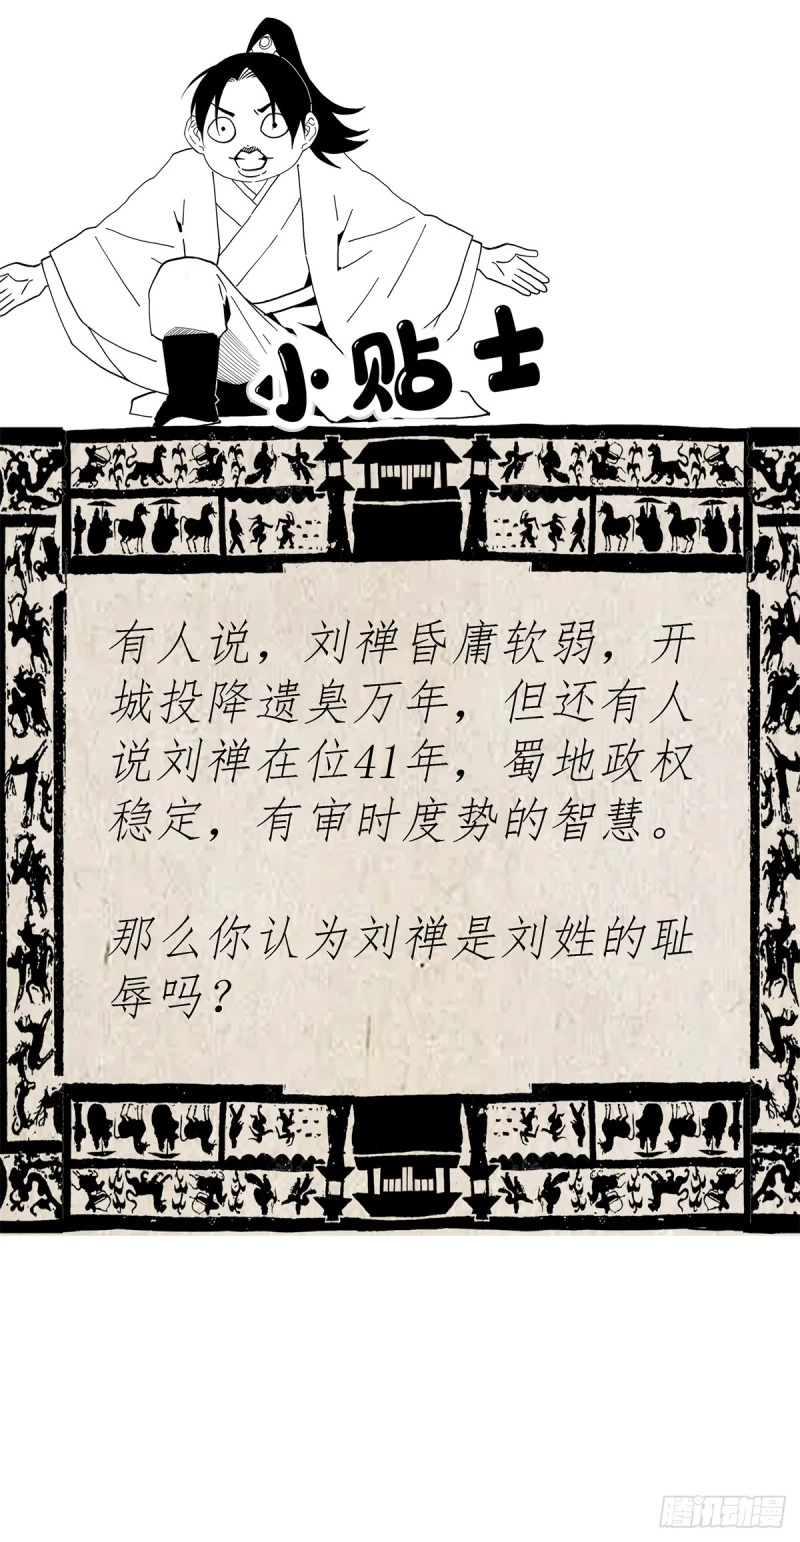 小贴士
有人说，刘禅昏庸软弱，开
城投降遗臭万年，但还有人
说刘禅在位41年，蜀地政权
稳定，有审时度势的智慧。
那么你认为刘禅是刘姓的耻
辱吗？
腾讯动漫